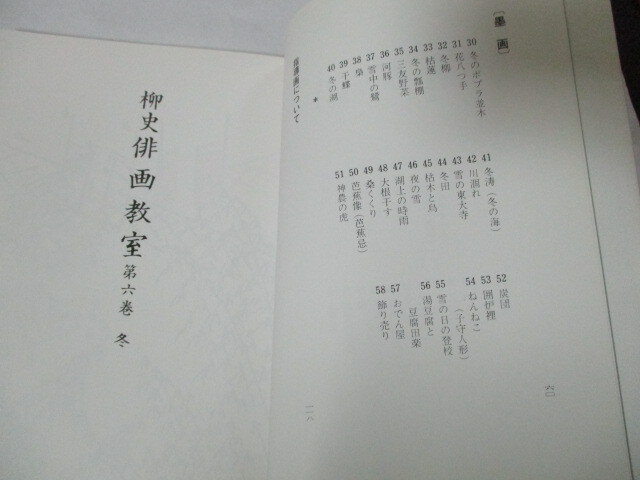 〔墨 画〕
30 冬のポプラ並木
31 花八つ手
32 冬柳
33 枯蓮
34 冬の瓢棚
35 三友野菜
36 河豚
37 雪中の鷺
38 梟
39 干鰈
40 冬の湖
41 冬涛（冬の海）
42 川涸れ
43 雪の東大寺
44 冬田
45 枯木と鳥
46 夜の雪
47 湖上の時雨
48 大根干す
49 桑くくり
50 芭蕉像（芭蕉忌）
51 神農の虎
52 炭団
53 囲炉裡
54 ねんねこ
（子守人形）
55 雪の日の登校
56 湯豆腐と
豆腐田楽
57 おでん屋
58 飾り売り
*
俳画について
柳史俳画教室 第六巻 冬